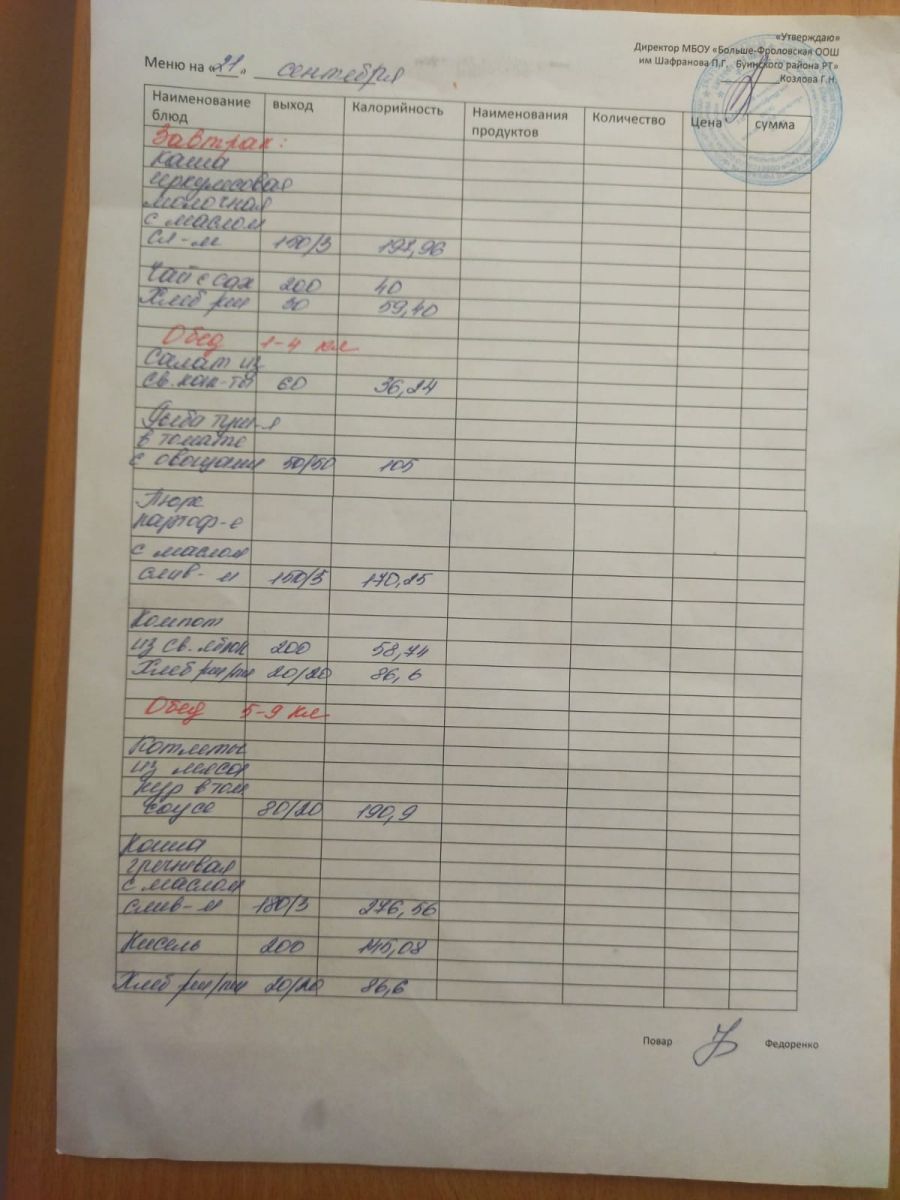 «Утверждаю»
Директор МБОУ «Больше-Фроловская ООШ
им Шафранова П.Г. Буинского района РТ»
Козлова Г.Н.
Меню на «21» сентебря
Наименование блюд выход Калорийность Наименования продуктов Количество Цена сумма
Завтрак:
Каша
геркулесовая
молочная
с маслом
сл-м 150/3 193,96
Чай с сах 200 40
Хлеб рж 30 59,40
Обед 1-4 кл
Салат из
св. кап-ты 60 36,24
Рыба туш-я
в томате
с овощами 50/50 105
Пюре
картоф-е
с маслом
слив-м 150/3 170,25
Компот
из св. яблок 200 58,74
Хлеб рж/пш 20/20 86,6
Обед 5-9 кл
Котлеты
из мяса
кур в том.
соусе 80/20 190,9
Каша
гречневая
с маслом
слив-м 180/3 276,56
Кисель 200 145,08
Хлеб рж/пш 20/20 86,6
Повар Федоренко